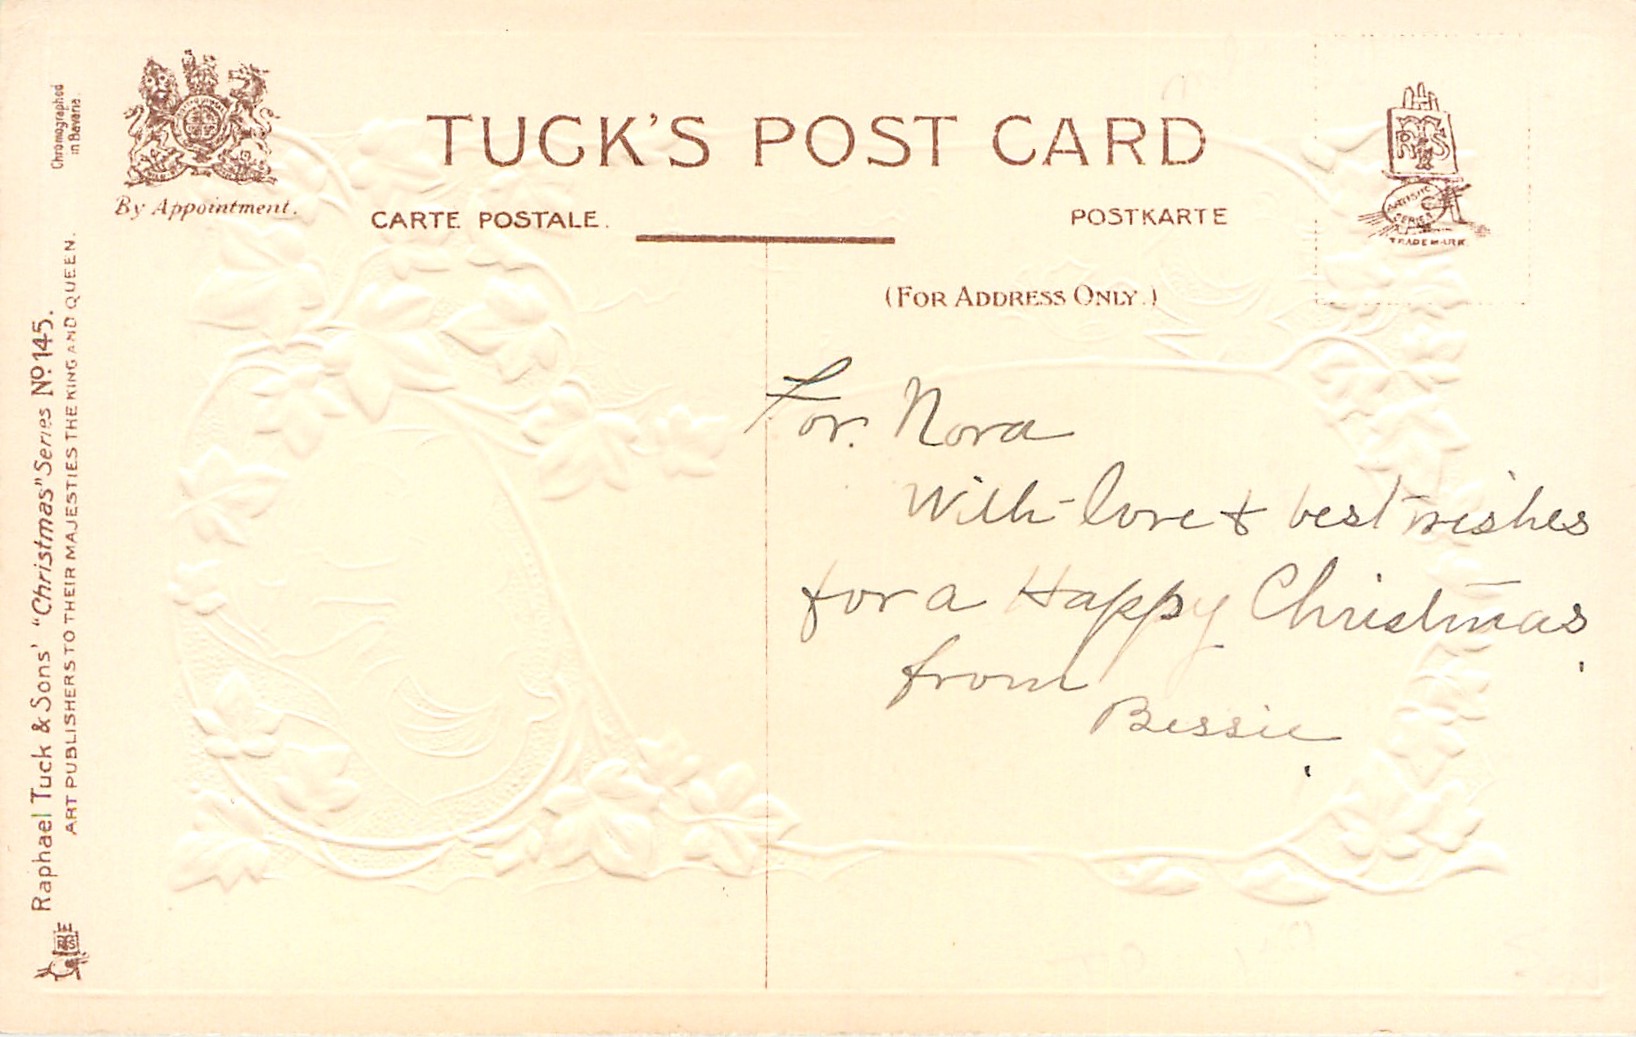 Chromographed
in Bavaria.
By Appointment.
TUCK'S POST CARD
CARTE POSTALE.
POSTKARTE
(FOR ADDRESS ONLY.)
RTS
ARTISTIC
SERIES
TRADE MARK
Raphael Tuck & Sons' "Christmas" Series No 145.
ART PUBLISHERS TO THEIR MAJESTIES THE KING AND QUEEN.
For Nora
With love & best wishes
for a Happy Christmas
from
Bessie